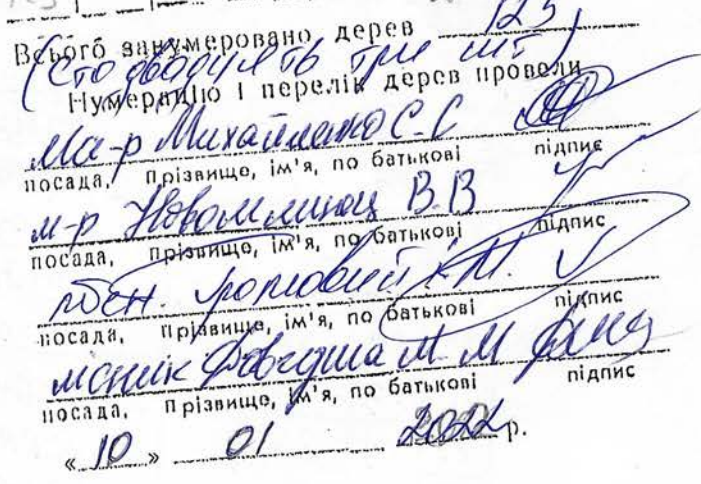 Всього занумеровано дерев 123
(сто двадцять три шт)
Нумерацію і перелік дерев провели
Ма-р Михайленко С.С
посада, прізвище, ім'я, по батькові підпис
м-р Новомлинец В.В
посада, прізвище, ім'я, по батькові підпис
посада, прізвище, ім'я, по батькові підпис
М. М
посада, прізвище, ім'я, по батькові підпис
«10» 01 2022 р.